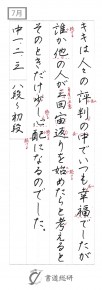 7月
キキは人々の評判の中でいつも幸福でしたが
誰か他の人が三回宙返りを始めたらと考えると
そのときだけ少し心配になるのでした。
中一・二・三　八段～初段
書道総研